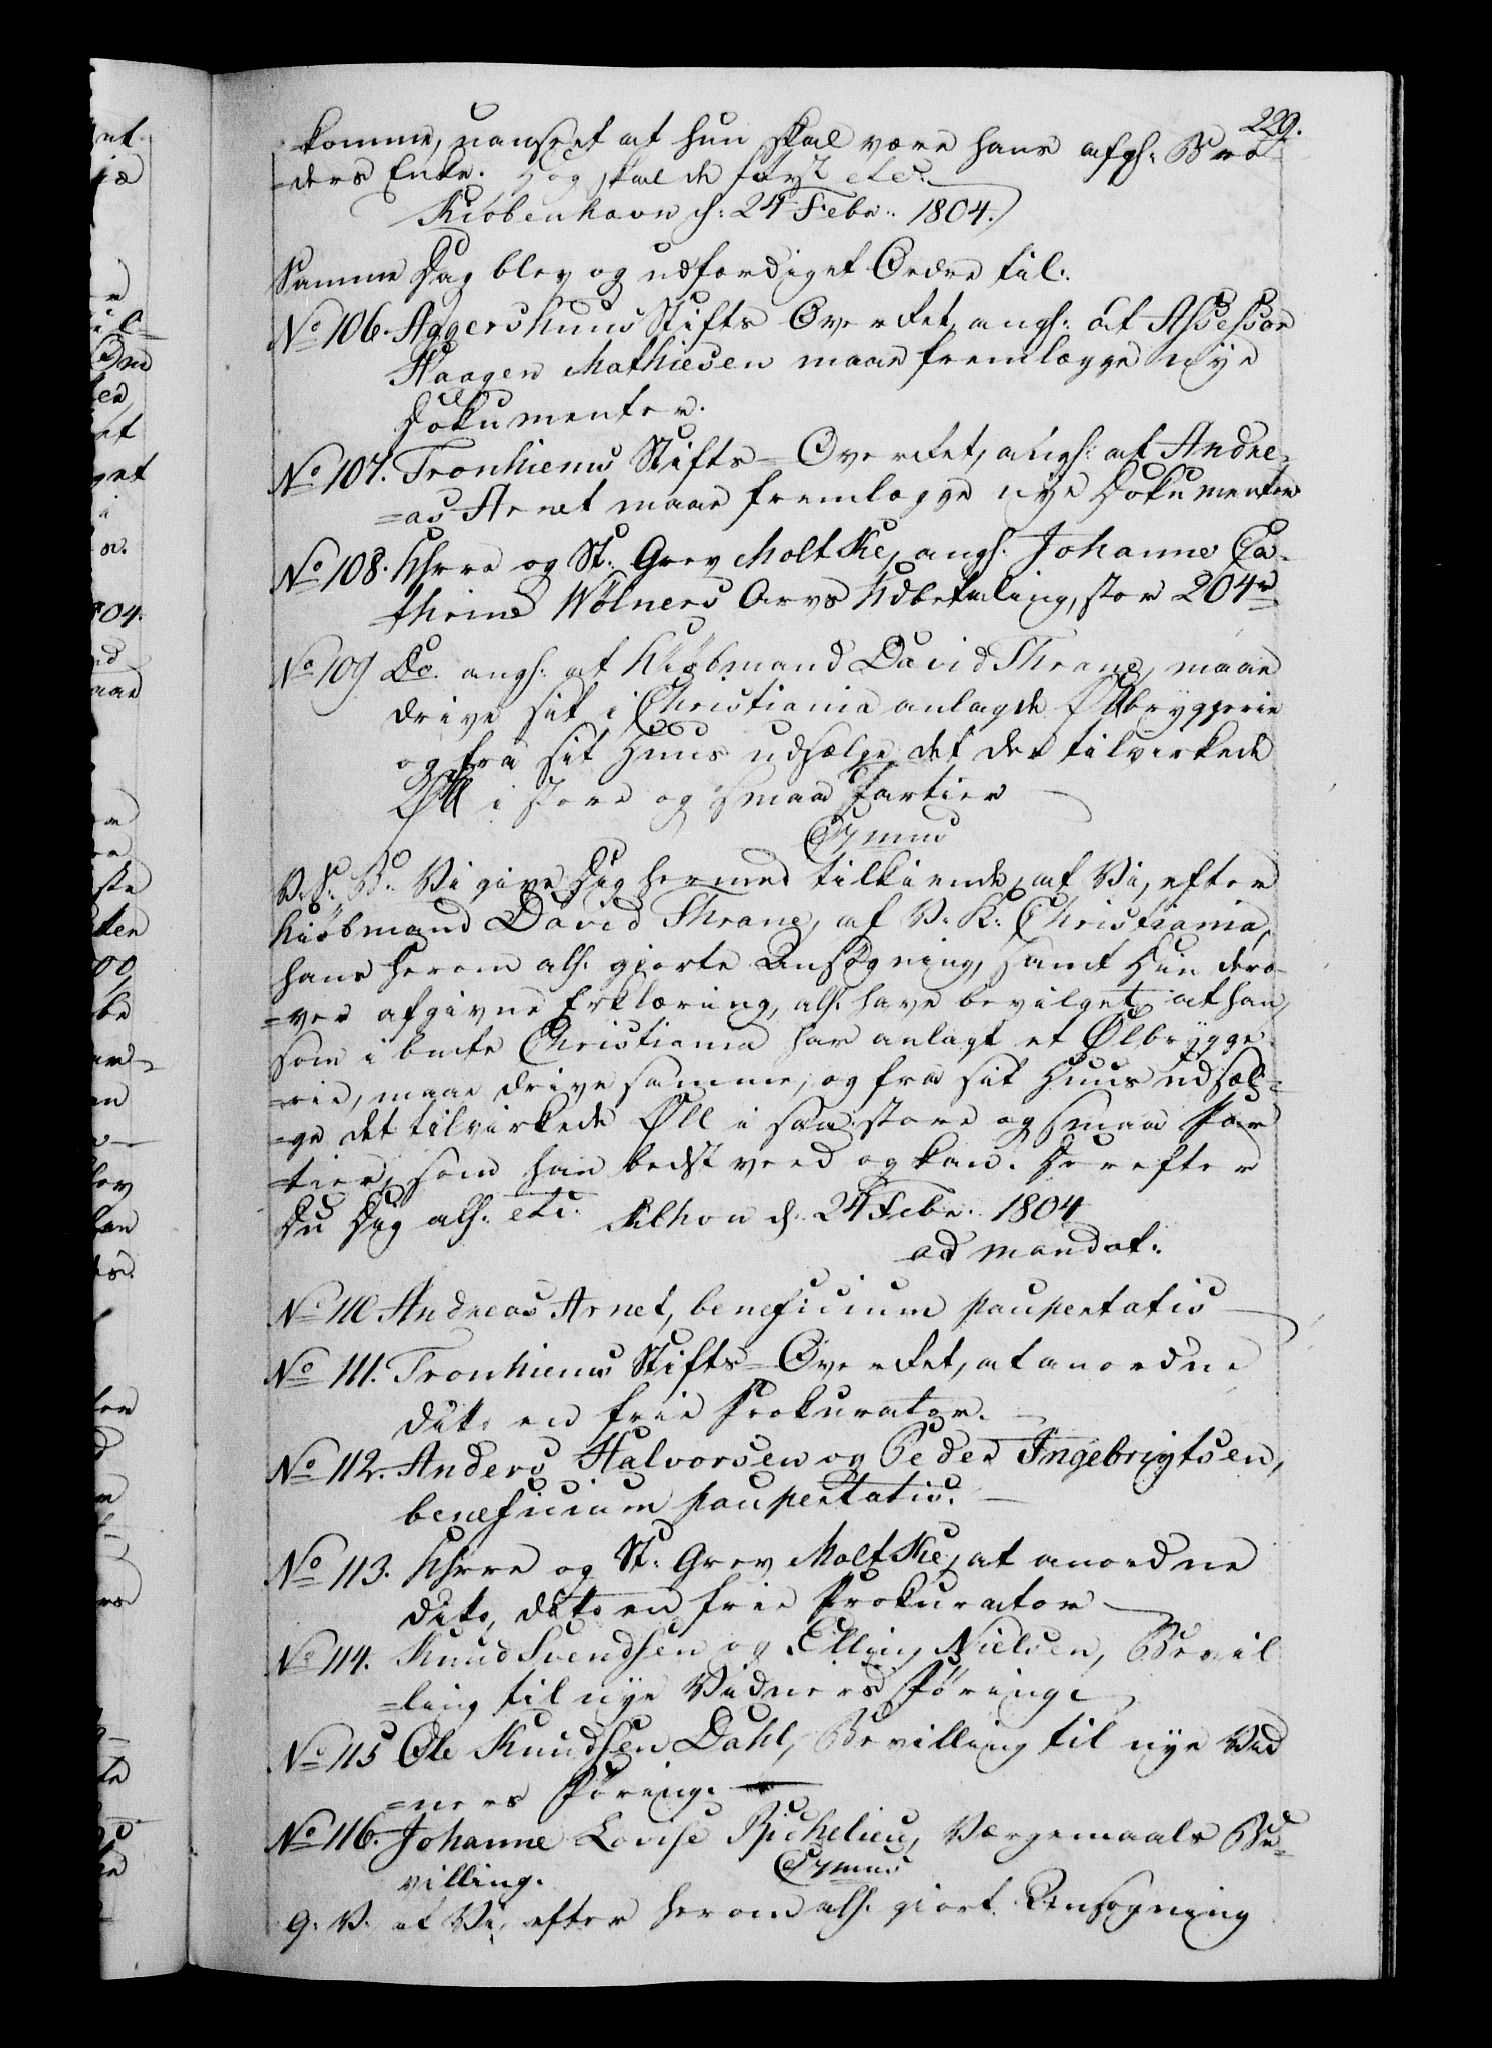 229.
komme, uanseet at hun skal være hans afgl: Bro-
=ders Enke. Dog skal de først etc:
Kiøbenhavn d: 24 Febr: 1804.
Samme Dag blev og udfærdiget Ordre til:
No 106. Aggershuus Stifts Overret, angl: at Assessor
Haagen Mathiesen maae fremlægge nye
Dokumenter.
No 107. Tronhiems Stifts-Overret, angl: at Andre-
=as Arnet maae fremlægge nye Dokumenter
No 108. Khrre og St: Grev Moltke, angl: Johanne Ca-
=thrine Wölners Arvs Udbetaling, stor 204 r
No 109 Do. angl: at Kiøbmand David Thrane, maae
drive sit i Christiania anlagde Ølbryggerie
og fra sit Huus udsælge det der tilvirkede
Øll i store og smaa Partier
V: S: B: Vi give Dig hermed tilkiende, at Vi, efter
Kiøbmand David Thrane, af V: K: Christiania,
hans herom all: giorte Ansøgning, samt Din dero-
=ver afgivne Erklæring, all: have bevilget, at han,
som i bmte Christiania har anlagt et Ølbrygge-
=rie, maae drive samme, og fra sit Huus udsæl-
=ge det tilvirkede Øll i saa store og smaa Par
=tier, som han bedst veed og kan. Derefter
Du Dig all: etc. Kbhvn d: 24 Febr: 1804
ad mandat:
No 110. Andreas Arnet, beneficium paupertatis
No 111. Tronhiems Stifts-Overret, at anordne
dito en frie Prokurator.
No 112. Anders Halvorsen og Peder Ingebrigtsen,
beneficium paupertatis.
No 113. Khrre og St: Grev Moltke, at anordne
dito, dito en frie Prokurator
No 114. Knud Svendsen og Elling Nielsen, Bevil
=ling til nye Vidners Føring
No 115 Ole Knudsen Dahl, Bevilling til nye Vid
=ners Føring.
No 116. Johanne Lovise Richelieu, Værgemaals Be-
villing.
G: V: at Vi, efter herom all: giort Ansøgning